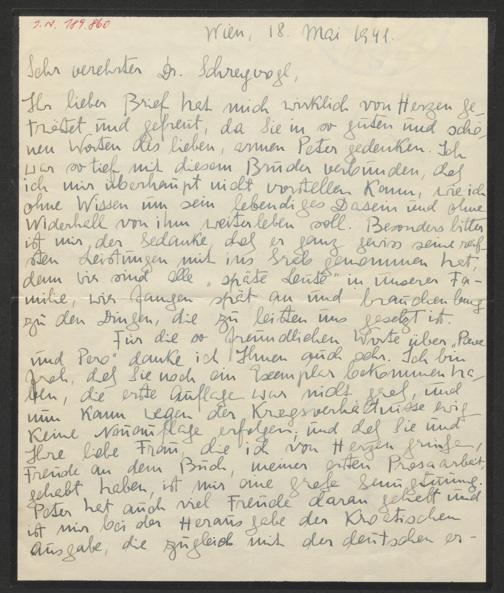 J.N. 189.860
Wien, 18. Mai 1941.
Sehr verehrter Dr. Schreyvogl,
Ihr lieber Brief hat mich wirklich von Herzen ge-
tröstet und gefreut, da Sie in so guten und schö-
nen Worten des lieben, armen Peter gedenken. Ich
war so tief mit diesem Bruder verbunden, daß
ich mir überhaupt nicht vorstellen kann, wie ich
ohne Wissen um sein lebendiges Dasein und ohne
Widerhall von ihm weiterleben soll. Besonders bitter
ist mir der Gedanke, daß er ganz gewiss seine reif-
sten Leistungen mit ins Grab genommen hat,
denn wir sind alle „späte Leute" in unserer Fa-
milie, wir fangen spät an und brauchen lang
zu den Dingen, die zu leisten uns gesetzt ist.
Für die so freundlichen Worte über „Pave
und Pero" danke ich Ihnen auch sehr. Ich bin
froh, daß Sie noch ein Exemplar bekommen ha-
ben, die erste Auflage war nicht groß, und
nun kann wegen der Kriegsverhältnisse
keine Neuauflage erfolgen; und daß Sie und
Ihre liebe Frau, die ich von Herzen grüße,
Freude an dem Buch, meiner ersten Prosaarbeit,
gehabt haben, ist mir eine große Genugtuung.
Peter hat auch viel Freude daran gehabt und
ist mir bei der Herausgabe der Kroatischen
Ausgabe, die zugleich mit der deutschen er-